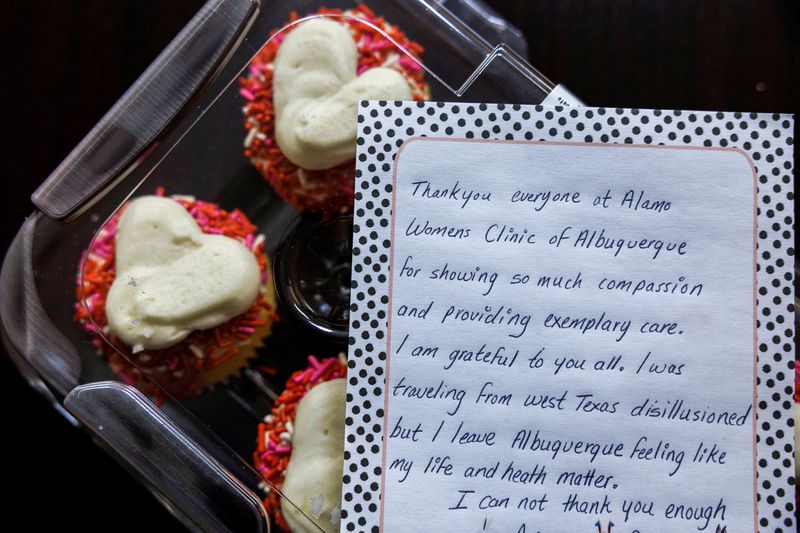 Thankyou everyone at Alamo
Womens Clinic of Albuquerque
for showing so much compassion
and providing exemplary care.
I am grateful to you all. I was
traveling from west Texas disillusioned
but I leave Albuquerque feeling like
my life and heath matter.
I can not thank you enough